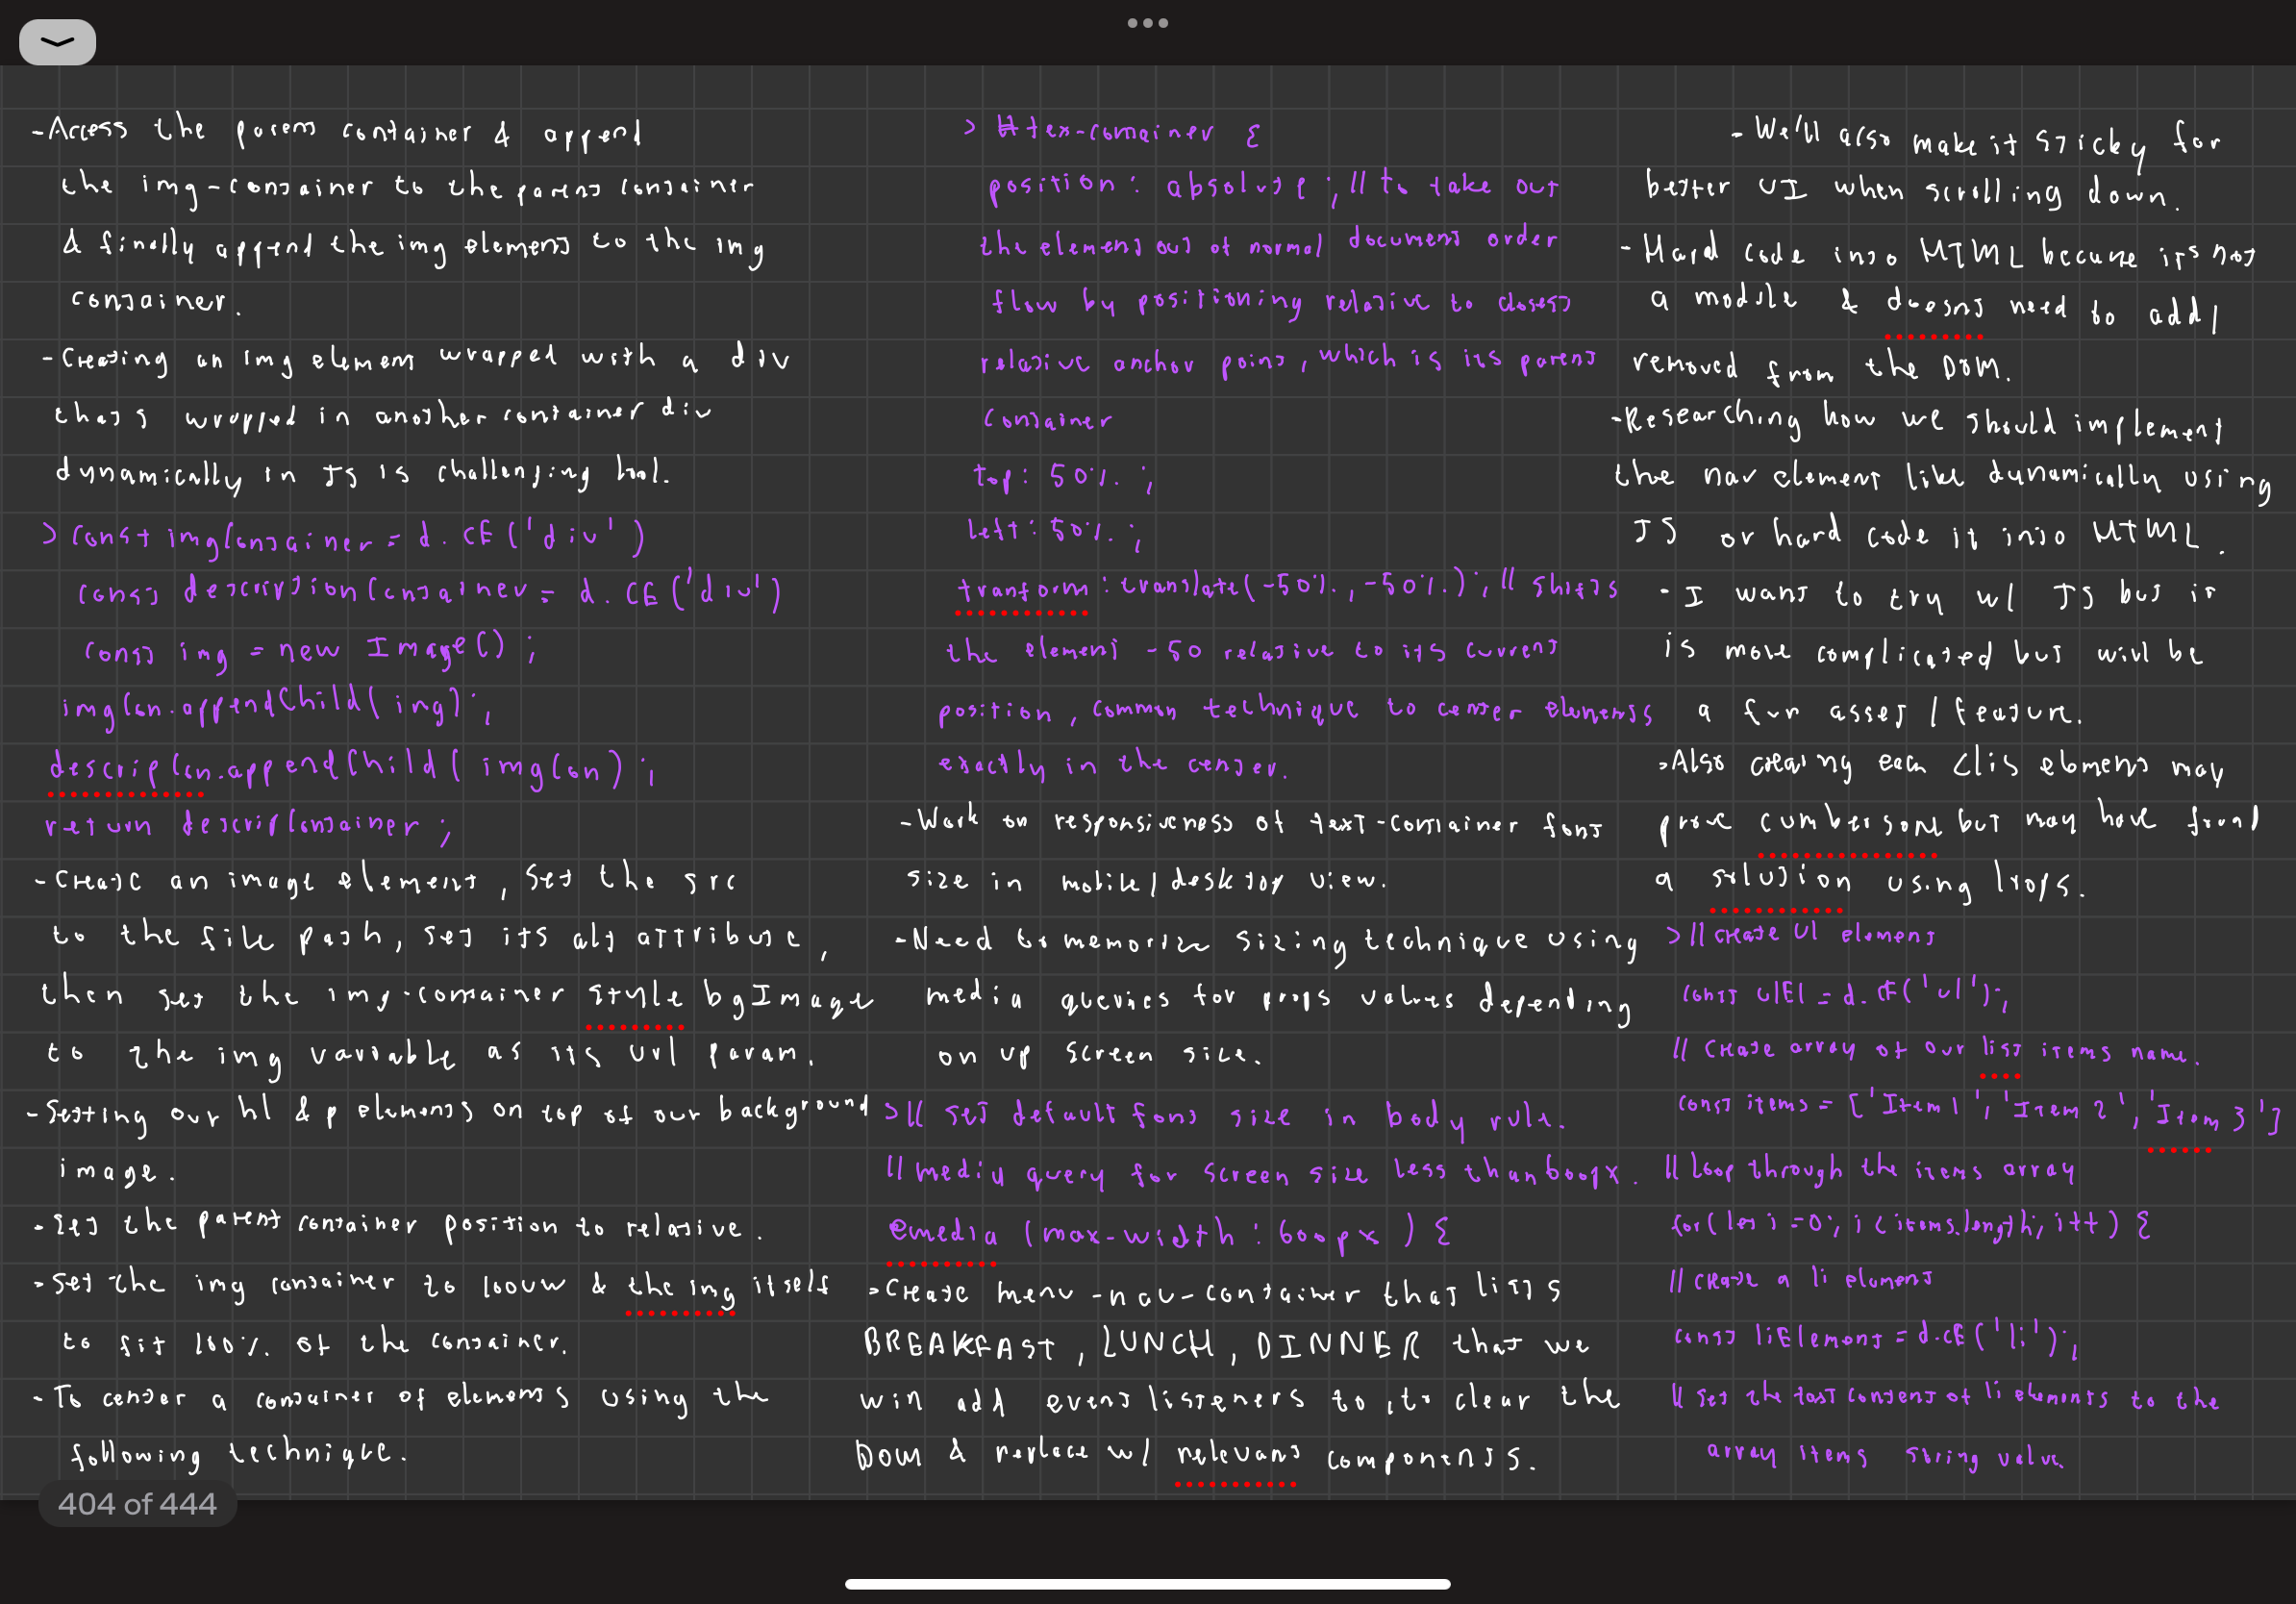 -Access the parent container & append
the img-container to the parent container
& finally append the img element to the img
container.
-Creating an img element wrapped with a div
thats wrapped in another container div
dynamically in JS is challenging tool.
> const imgContainer = d.CE('div')
const descriptionContainer = d.CE('div')
const img = new Image();
imgCon.appendChild(img);
descripCon.appendChild(imgCon);
return descripContainer;
-Create an image element, set the src
to the file path, set its alt attribute,
then set the img-container style bgImage
to the img variable as its url param.
-Setting our h1 & p elements on top of our background
image.
-Set the parent container position to relative.
-Set the img container to 100vw & the img itself
to fit 100% of the container.
-To center a container of elements using the
following technique.
> #tex-container {
position: absolute; // to take out
the element out of normal document order
flow by positioning relative to closest
relative anchor point, which is its parent
container
top: 50%;
left: 50%;
tranform: translate(-50%, -50%); // shifts
the element -50 relative to its current
position, common technique to center elements
exactly in the center.
-Work on responsiveness of text-container font
size in mobile/desktop view.
-Need to memorize sizing technique using
media queries for props values depending
on up screen size.
>// set default font size in body rule.
// media query for screen size less than 600px.
@media (max-width: 600px) {
-Create menu-nav-container that lists
BREAKFAST, LUNCH, DINNER that we
will add event listeners to, to clear the
DOM & replace w/ relevant components.
-We'll also make it sticky for
better UI when scrolling down.
-Hard code into HTML because its not
a module & doesnt need to add/
removed from the DOM.
-Researching how we should implement
the nav element like dynamically using
JS or hard code it into HTML.
-I want to try w/ JS but it
is more complicated but will be
a fun asset/feature.
-Also creating each <li> element may
prove cumbersome but may have found
a solution using loops.
>// create ul element
const ulEl = d.CE('ul');
// Create array of our list items name.
const items = ['Item 1', 'Item 2', 'Item 3']
// loop through the items array
for(let i =0; i < items.length; i++) {
// create a li element
const liElement = d.CE('li');
// set the text content of li elements to the
array items string value.
404 of 444